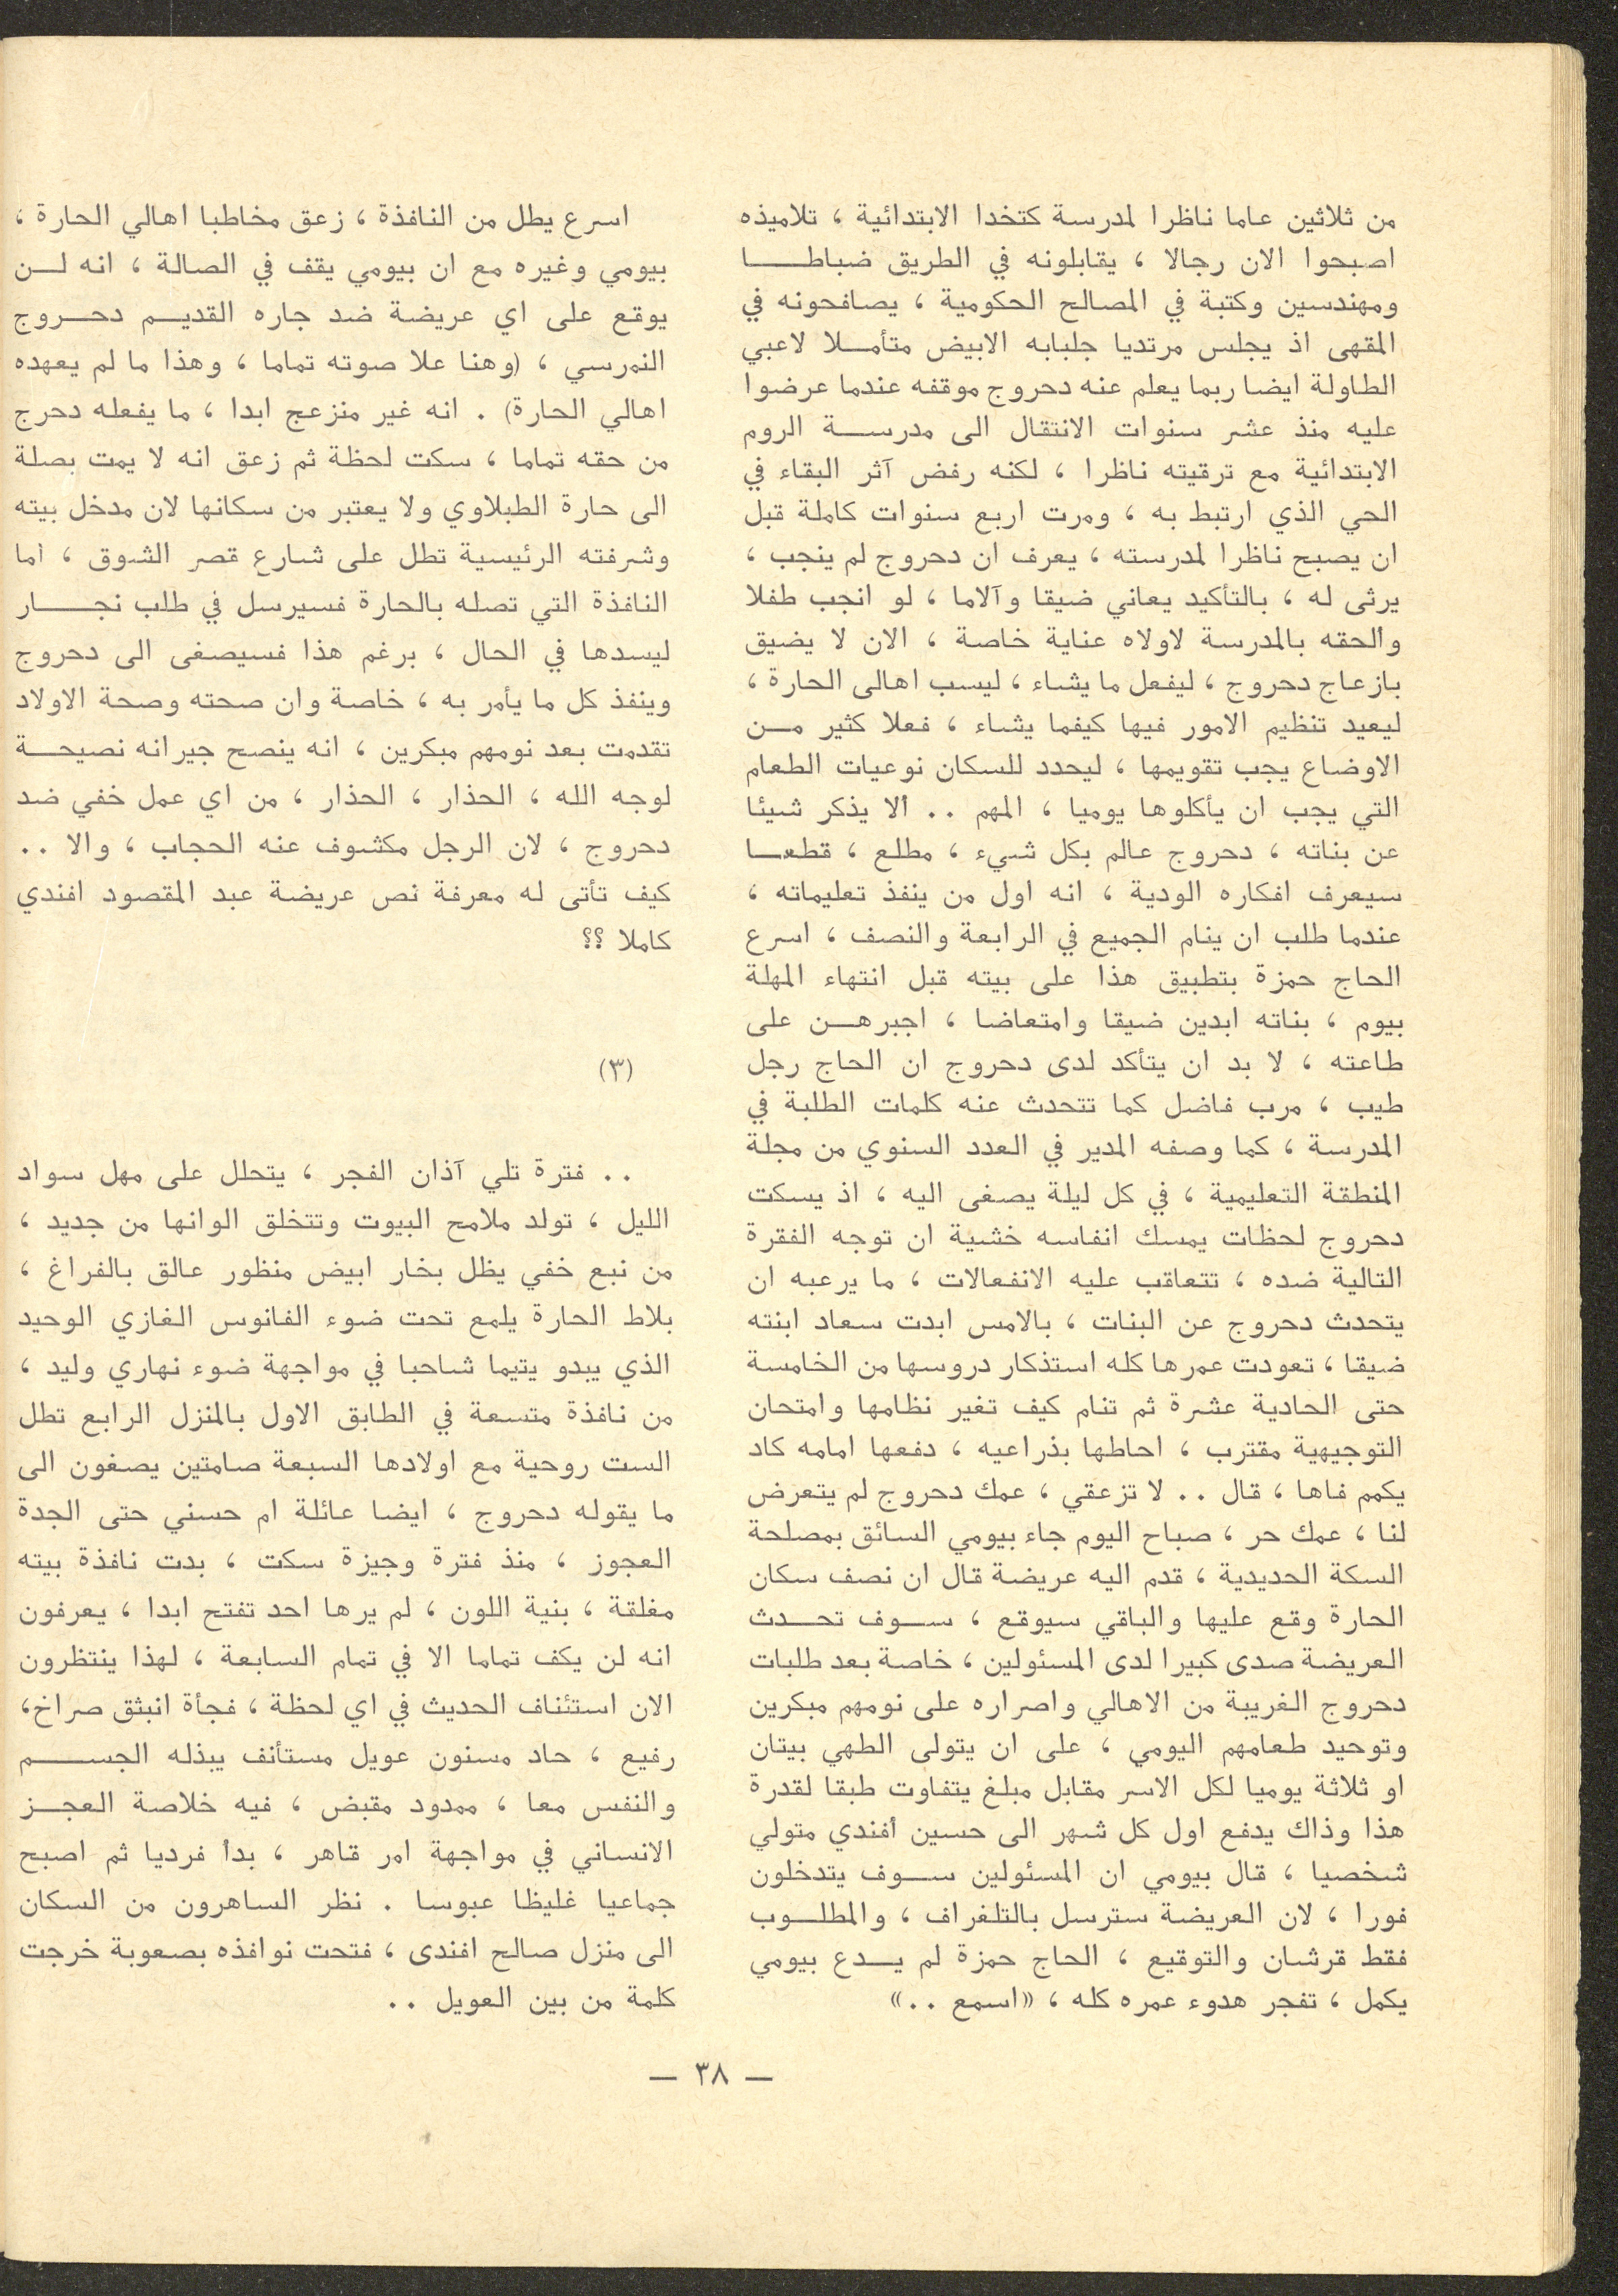 من ثلاثين عاما ناظرا لمدرسة كتخدا الابتدائية ، تلاميذه
اصبحوا الان رجالا ، يقابلونه في الطريق ضباطا
ومهندسين وكتبة في المصالح الحكومية ، يصافحونه في
المقهى اذ يجلس مرتديا جلبابه الابيض متأملا لاعبي
الطاولة ايضا ربما يعلم عنه دحروج موقفه عندما عرضوا
عليه منذ عشر سنوات الانتقال الى مدرسة الروم
الابتدائية مع ترقيته ناظرا ، لكنه رفض آثر البقاء في
الحي الذي ارتبط به ، ومرت اربع سنوات كاملة قبل
ان يصبح ناظرا لمدرسته ، يعرف ان دحروج لم ينجب ،
يرثى له ، بالتأكيد يعاني ضيقا وآلاما ، لو انجب طفلا
وألحقه بالمدرسة لاولاه عناية خاصة ، الان لا يضيق
بازعاج دحروج ، ليفعل ما يشاء ، ليسب اهالى الحارة ،
ليعيد تنظيم الامور فيها كيفما يشاء ، فعلا كثير من
الاوضاع يجب تقويمها ، ليحدد للسكان نوعيات الطعام
التي يجب ان يأكلوها يوميا ، المهم .. ألا يذكر شيئا
عن بناته ، دحروج عالم بكل شيء ، مطلع ، قطعا
سيعرف افكاره الودية ، انه اول من ينفذ تعليماته ،
عندما طلب ان ينام الجميع في الرابعة والنصف ، اسرع
الحاج حمزة بتطبيق هذا على بيته قبل انتهاء المهلة
بيوم ، بناته ابدين ضيقا وامتعاضا ، اجبرهن على
طاعته ، لا بد ان يتأكد لدى دحروج ان الحاج رجل
طيب ، مرب فاضل كما تتحدث عنه كلمات الطلبة في
المدرسة ، كما وصفه المدير في العدد السنوي من مجلة
المنطقة التعليمية ، في كل ليلة يصغى اليه ، اذ يسكت
دحروج لحظات يمسك انفاسه خشية ان توجه الفقرة
التالية ضده ، تتعاقب عليه الانفعالات ، ما يرعبه ان
يتحدث دحروج عن البنات ، بالامس ابدت سعاد ابنته
ضيقا ، تعودت عمرها كله استذكار دروسها من الخامسة
حتى الحادية عشرة ثم تنام كيف تغير نظامها وامتحان
التوجيهية مقترب ، احاطها بذراعيه ، دفعها امامه كاد
يكمم فاها ، قال .. لا تزعقي ، عمك دحروج لم يتعرض
لنا ، عمك حر ، صباح اليوم جاء بيومي السائق بمصلحة
السكة الحديدية ، قدم اليه عريضة قال ان نصف سكان
الحارة وقع عليها والباقي سيوقع ، سوف تحدث
العريضة صدى كبيرا لدى المسئولين ، خاصة بعد طلبات
دحروج الغريبة من الاهالي واصراره على نومهم مبكرين
وتوحيد طعامهم اليومي ، على ان يتولى الطهي بيتان
او ثلاثة يوميا لكل الاسر مقابل مبلغ يتفاوت طبقا لقدرة
هذا وذاك يدفع اول كل شهر الى حسين أفندي متولي
شخصيا ، قال بيومي ان المسئولين سوف يتدخلون
فورا ، لان العريضة سترسل بالتلغراف ، والمطلوب
فقط قرشان والتوقيع ، الحاج حمزة لم يدع بيومي
يكمل ، تفجر هدوء عمره كله ، «اسمع ..»
اسرع يطل من النافذة ، زعق مخاطبا اهالي الحارة ،
بيومي وغيره مع ان بيومي يقف في الصالة ، انه لن
يوقع على اي عريضة ضد جاره القديم دحروج
النمرسي ، (وهنا علا صوته تماما ، وهذا ما لم يعهده
اهالي الحارة) . انه غير منزعج ابدا ، ما يفعله دحرج
من حقه تماما ، سكت لحظة ثم زعق انه لا يمت بصلة
الى حارة الطبلاوي ولا يعتبر من سكانها لان مدخل بيته
وشرفته الرئيسية تطل على شارع قصر الشوق ، أما
النافذة التي تصله بالحارة فسيرسل في طلب نجار
ليسدها في الحال ، برغم هذا فسيصغى الى دحروج
وينفذ كل ما يأمر به ، خاصة وان صحته وصحة الاولاد
تقدمت بعد نومهم مبكرين ، انه ينصح جيرانه نصيحة
لوجه الله ، الحذار ، الحذار ، من اي عمل خفي ضد
دحروج ، لان الرجل مكشوف عنه الحجاب ، والا ..
كيف تأتى له معرفة نص عريضة عبد المقصود افندي
كاملا ؟؟
(٣)
.. فترة تلي آذان الفجر ، يتحلل على مهل سواد
الليل ، تولد ملامح البيوت وتتخلق الوانها من جديد ،
من نبع خفي يظل بخار ابيض منظور عالق بالفراغ ،
بلاط الحارة يلمع تحت ضوء الفانوس الغازي الوحيد
الذي يبدو يتيما شاحبا في مواجهة ضوء نهاري وليد ،
من نافذة متسعة في الطابق الاول بالمنزل الرابع تطل
الست روحية مع اولادها السبعة صامتين يصغون الى
ما يقوله دحروج ، ايضا عائلة ام حسني حتى الجدة
العجوز ، منذ فترة وجيزة سكت ، بدت نافذة بيته
مغلقة ، بنية اللون ، لم يرها احد تفتح ابدا ، يعرفون
انه لن يكف تماما الا في تمام السابعة ، لهذا ينتظرون
الان استئناف الحديث في اي لحظة ، فجأة انبثق صراخ ،
رفيع ، حاد مسنون عويل مستأنف يبذله الجسم
والنفس معا ، ممدود مقبض ، فيه خلاصة العجز
الانساني في مواجهة امر قاهر ، بدأ فرديا ثم اصبح
جماعيا غليظا عبوسا . نظر الساهرون من السكان
الى منزل صالح افندى ، فتحت نوافذه بصعوبة خرجت
كلمة من بين العويل ..
— ٣٨ —